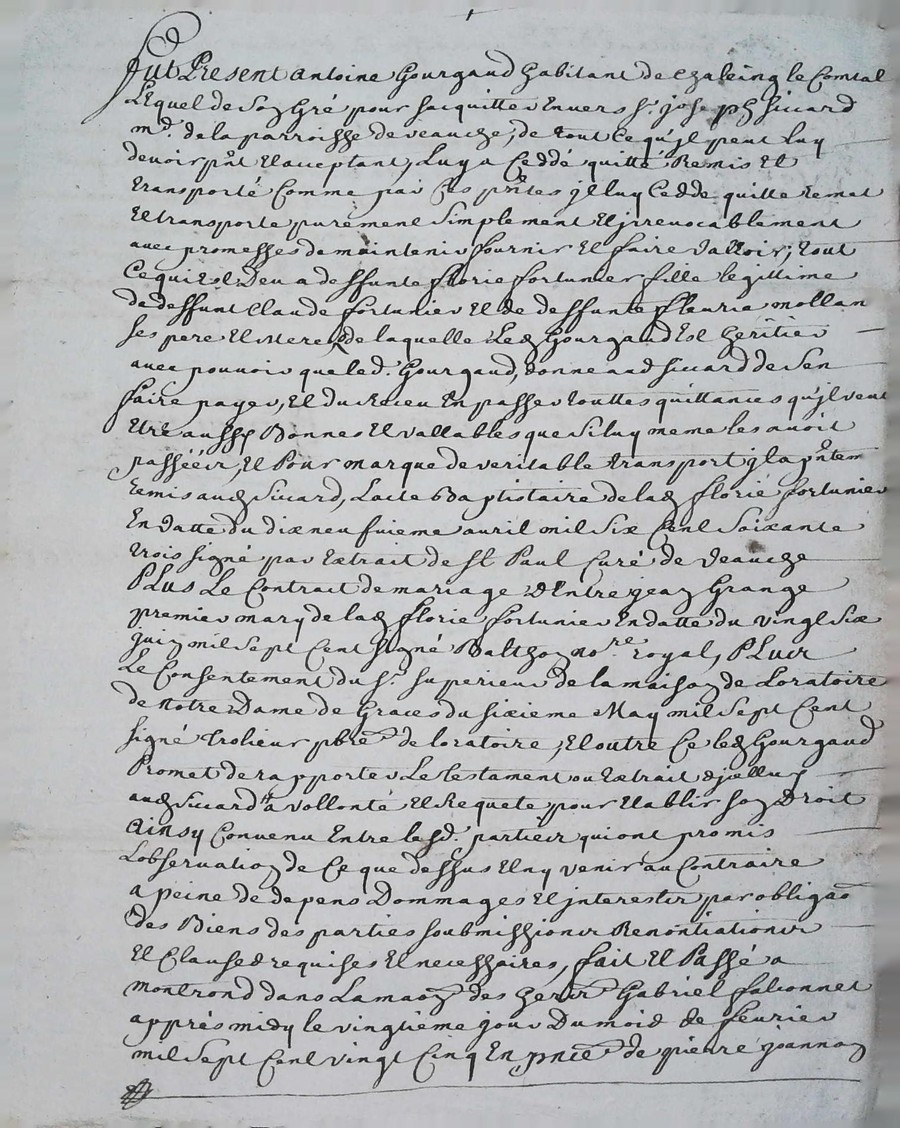 fut Present antoine Gourgaud habitant de chalaing le Comtal
Lequel de son Gré pour sacquitter Envers sr. joseph siccard
md. de la parroisse de veauche, de tout ce qu'jl peut luy
devoir pnt Et acceptant, Luy a Ceddé quitté Remis Et
transporté Comme par Ces pntes jl luy Cedde quitte Remet
Et transporte purement simplement Et jrrevocablement
avec promesses de maintenir fournir Et faire valloir, tout
Ce qui Est Deu a deffunte florie fortunier fille legittime
de deffunt Claude fortunier Et de deffunte fleurie mollan
ses pere Et mere de laquelle Led Gourgaud Est heritier
avec pouvoir que led. Gourgaud, donne aud siccard de sen
faire payer, Et du Receu En passer touttes quittances qu'jl veut
Etre aussy Bonnes Et vallables que si luy meme les avoit
passéés, Et Pour marque de veritable transport jl a pntem
Remis aud siccard, Lacte Baptistaire de lad florie fortunier
En datte du dixneufuieme avril mil six Cent soixante
trois signé par Extrait de st Paul Curé de veauche
PLus Le Contrait de mariage d'Entre jean Grange
premier mary de lad florie fortunier En datte du vingt six
juin mil sept Cent signé Balthon nore. royal, PLus
Le Consentement du sr. superieur de la maison de Loratoire
de notre Dame de Graces du sixieme May mil sept Cent
signé trolieur pbre de loratoire, Et outre Ce led Gourgaud
Promet de rapporter Le testament ou Extrait djcelluy
aud siccard a vollonté Et Requete pour Etablir son Droit
Ainsy Convenu Entre lesd. parties qui ont promis
Lobservation de Ce que dessus Et ny venir au Contraire
a peine de depens Dommages Et jnterests par obligaon
des Biens des parties soubmissions Renontiations
Et Clauses requises Et necessaires, fait Et Passé a
montrond dans La maon des hers Gabriel falconnet
apprés midy le vingtième jour Du mois de fevrier
mil sept Cent vingt Cinq En pnce de pierre joannon